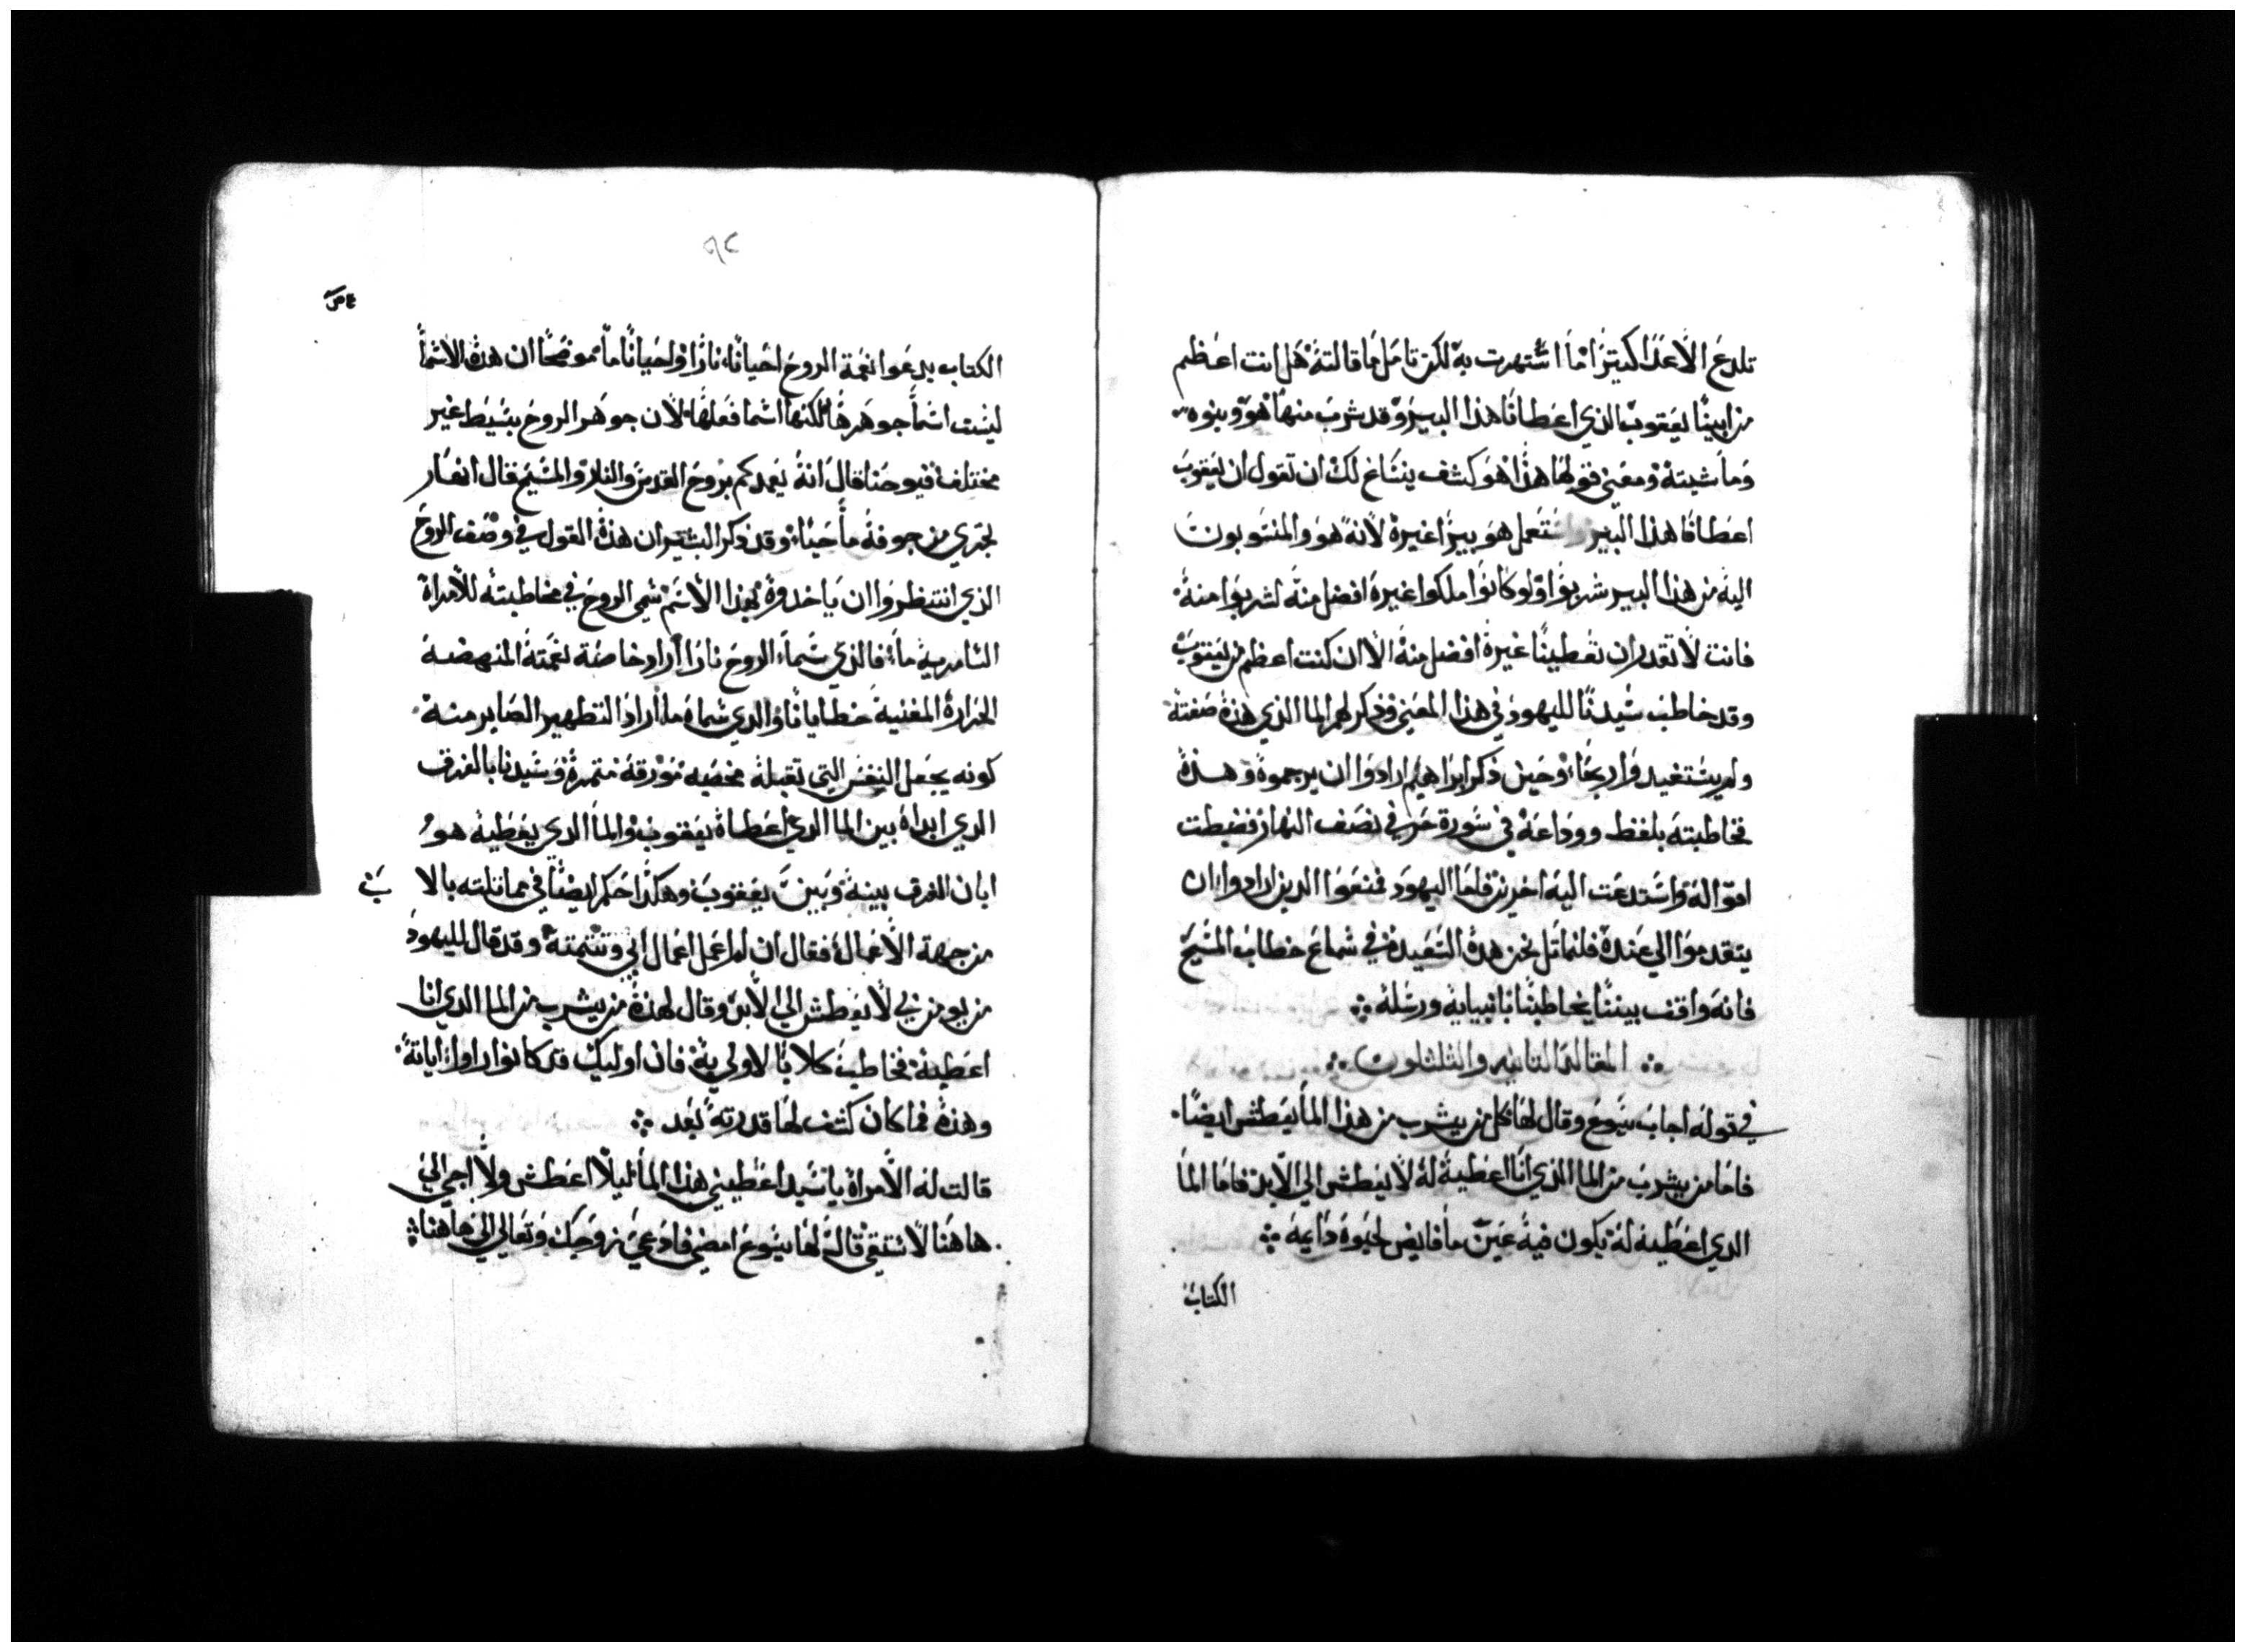 تلدع الاعدا كتيرًا ما اشتهرت به لكن تامل ما قالته هل انت اعظم
من ابينا يعقوب الذي اعطانا هذا البير وقد شرب منها هو وبنوه
وماشيته ومعني قولها هذا هو كشف ينساغ لك ان تقول ان يعقوب
اعطانا هذا البير واستعمل هو بيرًا غيره لانه هو والمنسوبون
اليه من هذا البير شربوا ولو كانوا ملكوا غيره افضل منه لشربوا منه
فانت لا تقدر ان تعطينا غيره افضل منه الا ان كنت اعظم من يعقوب
وقد خاطب سيدنا لليهود في هذا المعني وذكر لهم الما الذي هذه صفته
ولم يستفيدوا ربحًا وحين ذكر ابراهيم ارادوا ان يرجموه وهذه
فخاطبته بلفظ ووداعه في سورة حر في نصف النهار فضبطت
اقواله واستدعت اليه اخرين فاما اليهود فمنعوا الدين ارادوا ان
يتقدموا الي عنده فلنماتل نحن هذه السعيده في سماع خطاب المسيح
فانه واقف بيننا يخاطبنا بانبيايه ورسله
المقاله التانيه والتلتلون
في قوله اجاب يسوع وقال لها كل من يشرب من هذا الما يعطش ايضًا
فاما من يشرب من الما الذي انا اعطيه له لا يعطش الي الابد فاما الما
الدي اعطيه له يكون فيه عين ما فايض لحيوه دايمه
الكتاب
٩٢
الكتاب يدعوا نعمة الروح احيانًا نارًا واحيانًا ما موضحًا ان هده الاسما
ليست اسما جوهرها لكنها اسما فعلها لان جوهر الروح بسيط غير
مختلف فيوحنا قال انه يعمدكم بروح القدس والنار والمسيح قال انهار
تجري من جوفه ما حيًا وقد ذكر البشير ان هذه القول في وصف الروح
الذي انتظروا ان ياخدوه بهذا الاسم سمي الروح في مخاطبته للامراة
السامرية ما فالذي سما الروح نارًا اراد خاصة نعمته المنهضة
الحرارة المفنية خطايانا والدي سماه ما اراد التطهير الصاير منه
كونه يجعل النفس التي تقبله مخصبه مورقة متمرة وسيدنا بالفرق
الدي ابداه بين الما الدي اعطاه يعقوب والما الدي يعطيه هو
ابان الفرق بينه وبين يعقوب وهكذا احكم ايضًا في مماتلته بالا
من جهة الاعمال فقال ان لم اعمل اعمال ابي وتتمته وقد قال لليهود
من يومن بي لا يعطش الي الابد وقال لهذه من يشرب من الما الدي انا
اعطيه فخاطب كلا بالاولي به فان اوليك قد كانوا راوا اياته
وهذه فما كان كشف لها قدرته بعد
قالت له الامراة يا سيد اعطيني هذا الما ليلا اعطش ولا اجي الي
هاهنا لاستقي قال لها يسوع امضي فادعي زوجك وتعالي الي هاهنا